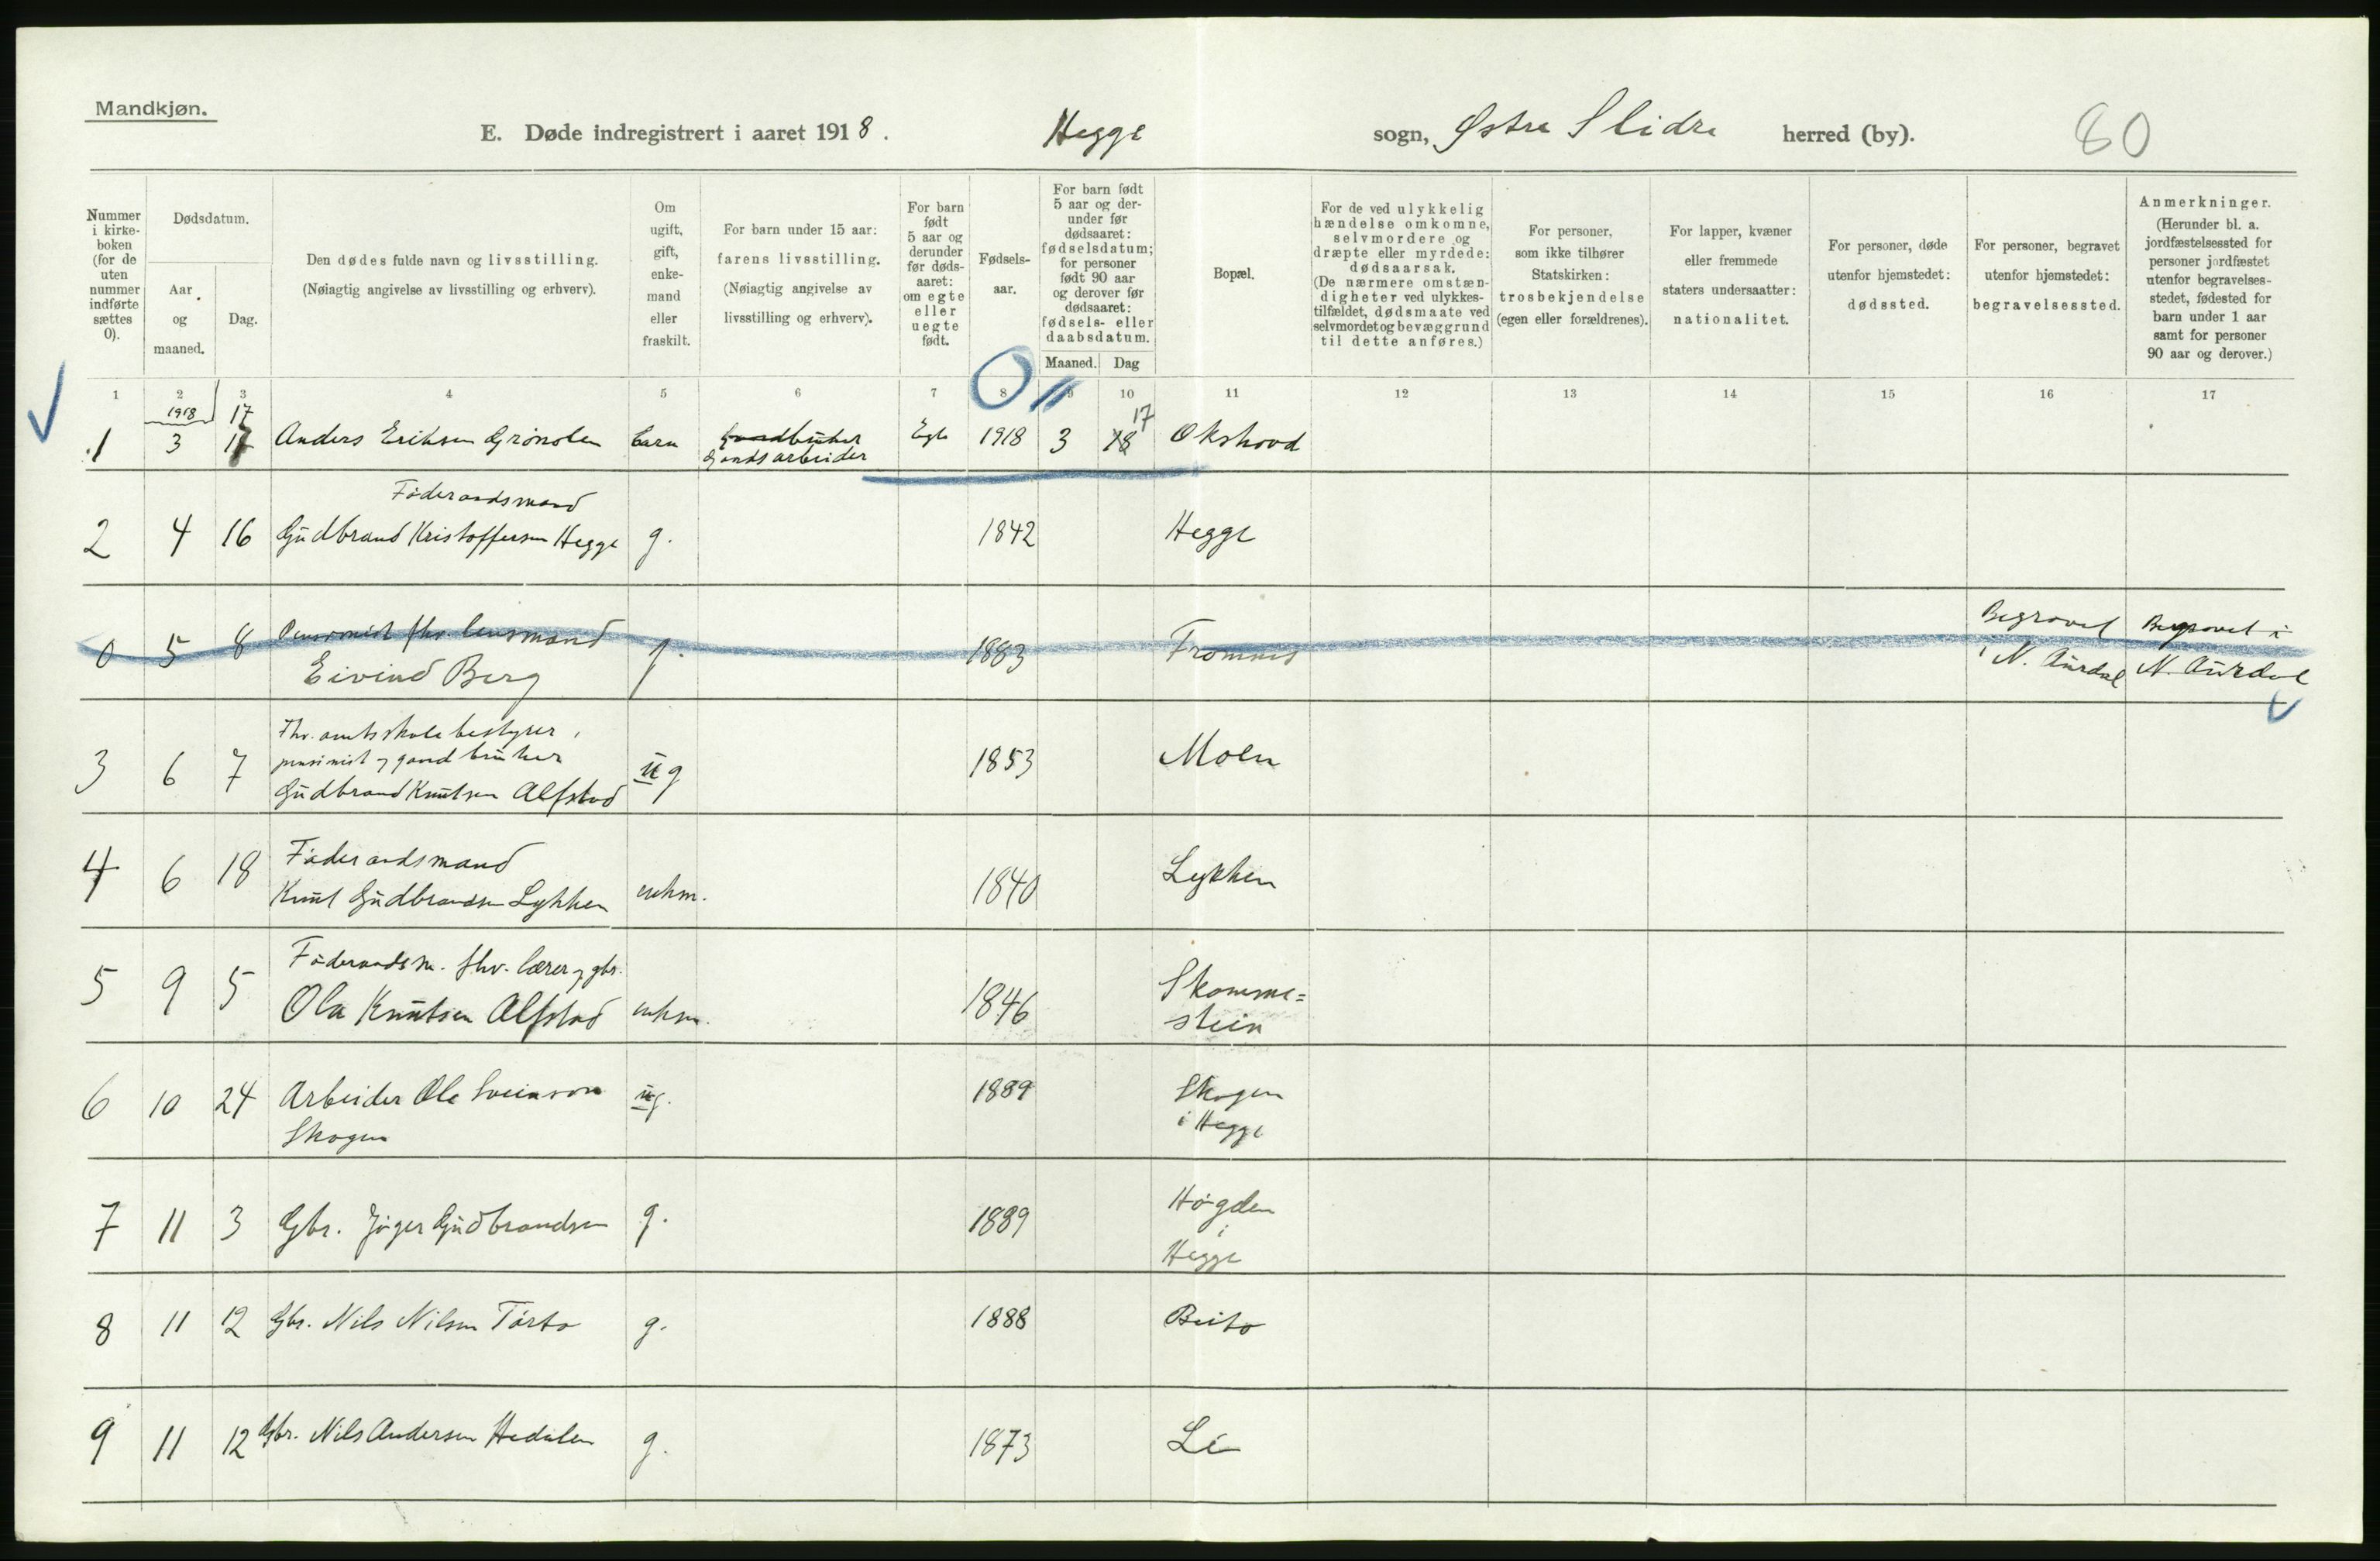 Mandkjøn.
E. Døde indregistrert i aaret 1918. Hegge sogn, Østre Slidre herred (by). 80
Nummer i kirke-boken (for de uten nummer indførte sættes 0).
Dødsdatum.
Aar og maaned.
Dag.
Den dødes fulde navn og livsstilling.
(Nøiagtig angivelse av livsstilling og erhverv).
Om ugift, gift, enke-mand eller fraskilt.
For barn under 15 aar: farens livsstilling.
(Nøiagtig angivelse av livsstilling og erhverv).
For barn født 5 aar og derunder før døds-aaret: om egte eller uegte født.
Fødsels-aar.
For barn født 5 aar og der-under før dødsaaret: fødselsdatum; for personer født 90 aar og derover før dødsaaret: fødsels- eller daabsdatum.
Maaned. Dag
Bopæl.
For de ved ulykkelig hændelse omkomne, selvmordere og dræpte eller myrdede: dødsaarsak.
(De nærmere omstæn-digheter ved ulykkes-tilfældet, dødsmaate ved selvmordet og bevæggrund til dette anføres.)
For personer, som ikke tilhører Statskirken: trosbekjendelse (egen eller forældrenes).
For lapper, kvæner eller fremmede staters undersaatter: nationalitet.
For personer, døde utenfor hjemstedet: dødssted.
For personer, begravet utenfor hjemstedet: begravelsessted.
Anmerkninger.
(Herunder bl. a. jordfæstelsessted for personer jordfæstet utenfor begravelses-stedet, fødested for barn under 1 aar samt for personer 90 aar og derover.)
1 2 3 4 5 6 7 8 9 10 11 12 13 14 15 16 17
1918 17 17
1 3 17 Anders Eriksen Grønolen barn Gaardbruker Egte 1918 3 18 Okshovd
Gaardsarbeider
Føderaadsmand
2 4 16 Gudbrand Kristoffersen Hegge g. 1842 Hegge
Pensionist fhv. lensmand Begravet Begravet i
0 5 8 Eivind Berg g. 1883 Fromnes i N. Aurdal N. Aurdal
Fhv. amtsskolebestyrer,
pensionist og gaardbruker
3 6 7 Gudbrand Knutsen Alfstad ug 1853 Moen
Føderaadsmand
4 6 18 Knut Gudbrandsen Lykken enkm. 1840 Lykken
Føderaadsm. fhv. lærer og gbr. Skomme=
5 9 5 Ola Knutsen Alfstad enkm. 1846 stein
6 10 24 Arbeider Ole Sveinson ug. 1889 Skogen
Skogen i Hegge
7 11 3 Gbr. Jøger Gudbrandsen g. 1889 Høgden
i
Hegge
8 11 12 Gbr. Nils Nilsen Tørto g. 1888 Beito
9 11 12 Gbr. Nils Andersen Hedalen g. 1873 Li